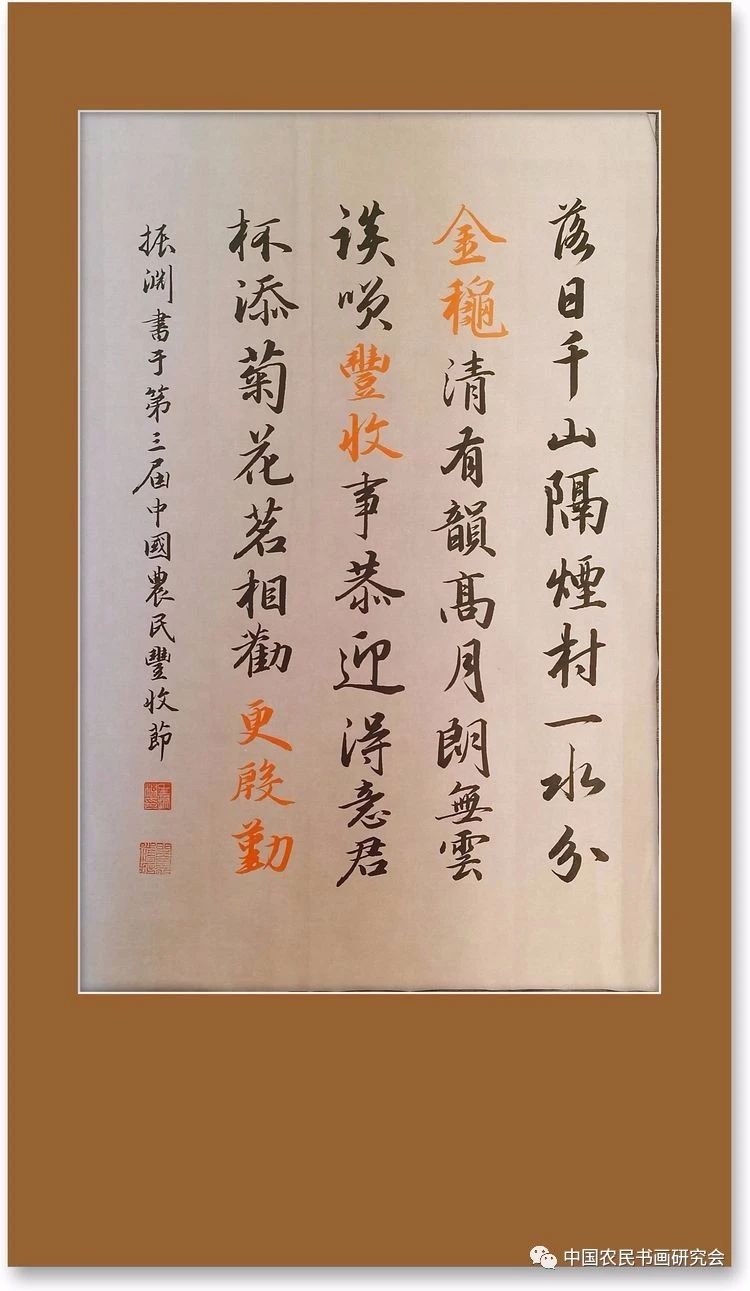 落日千山隔煙村一水分
金穐清有韻髙月朗無雲
談咲豐收事恭迎得意君
杯添菊花茗相勸更殷勤
振淵書于第三屆中國農民豐收節
中国农民书画研究会